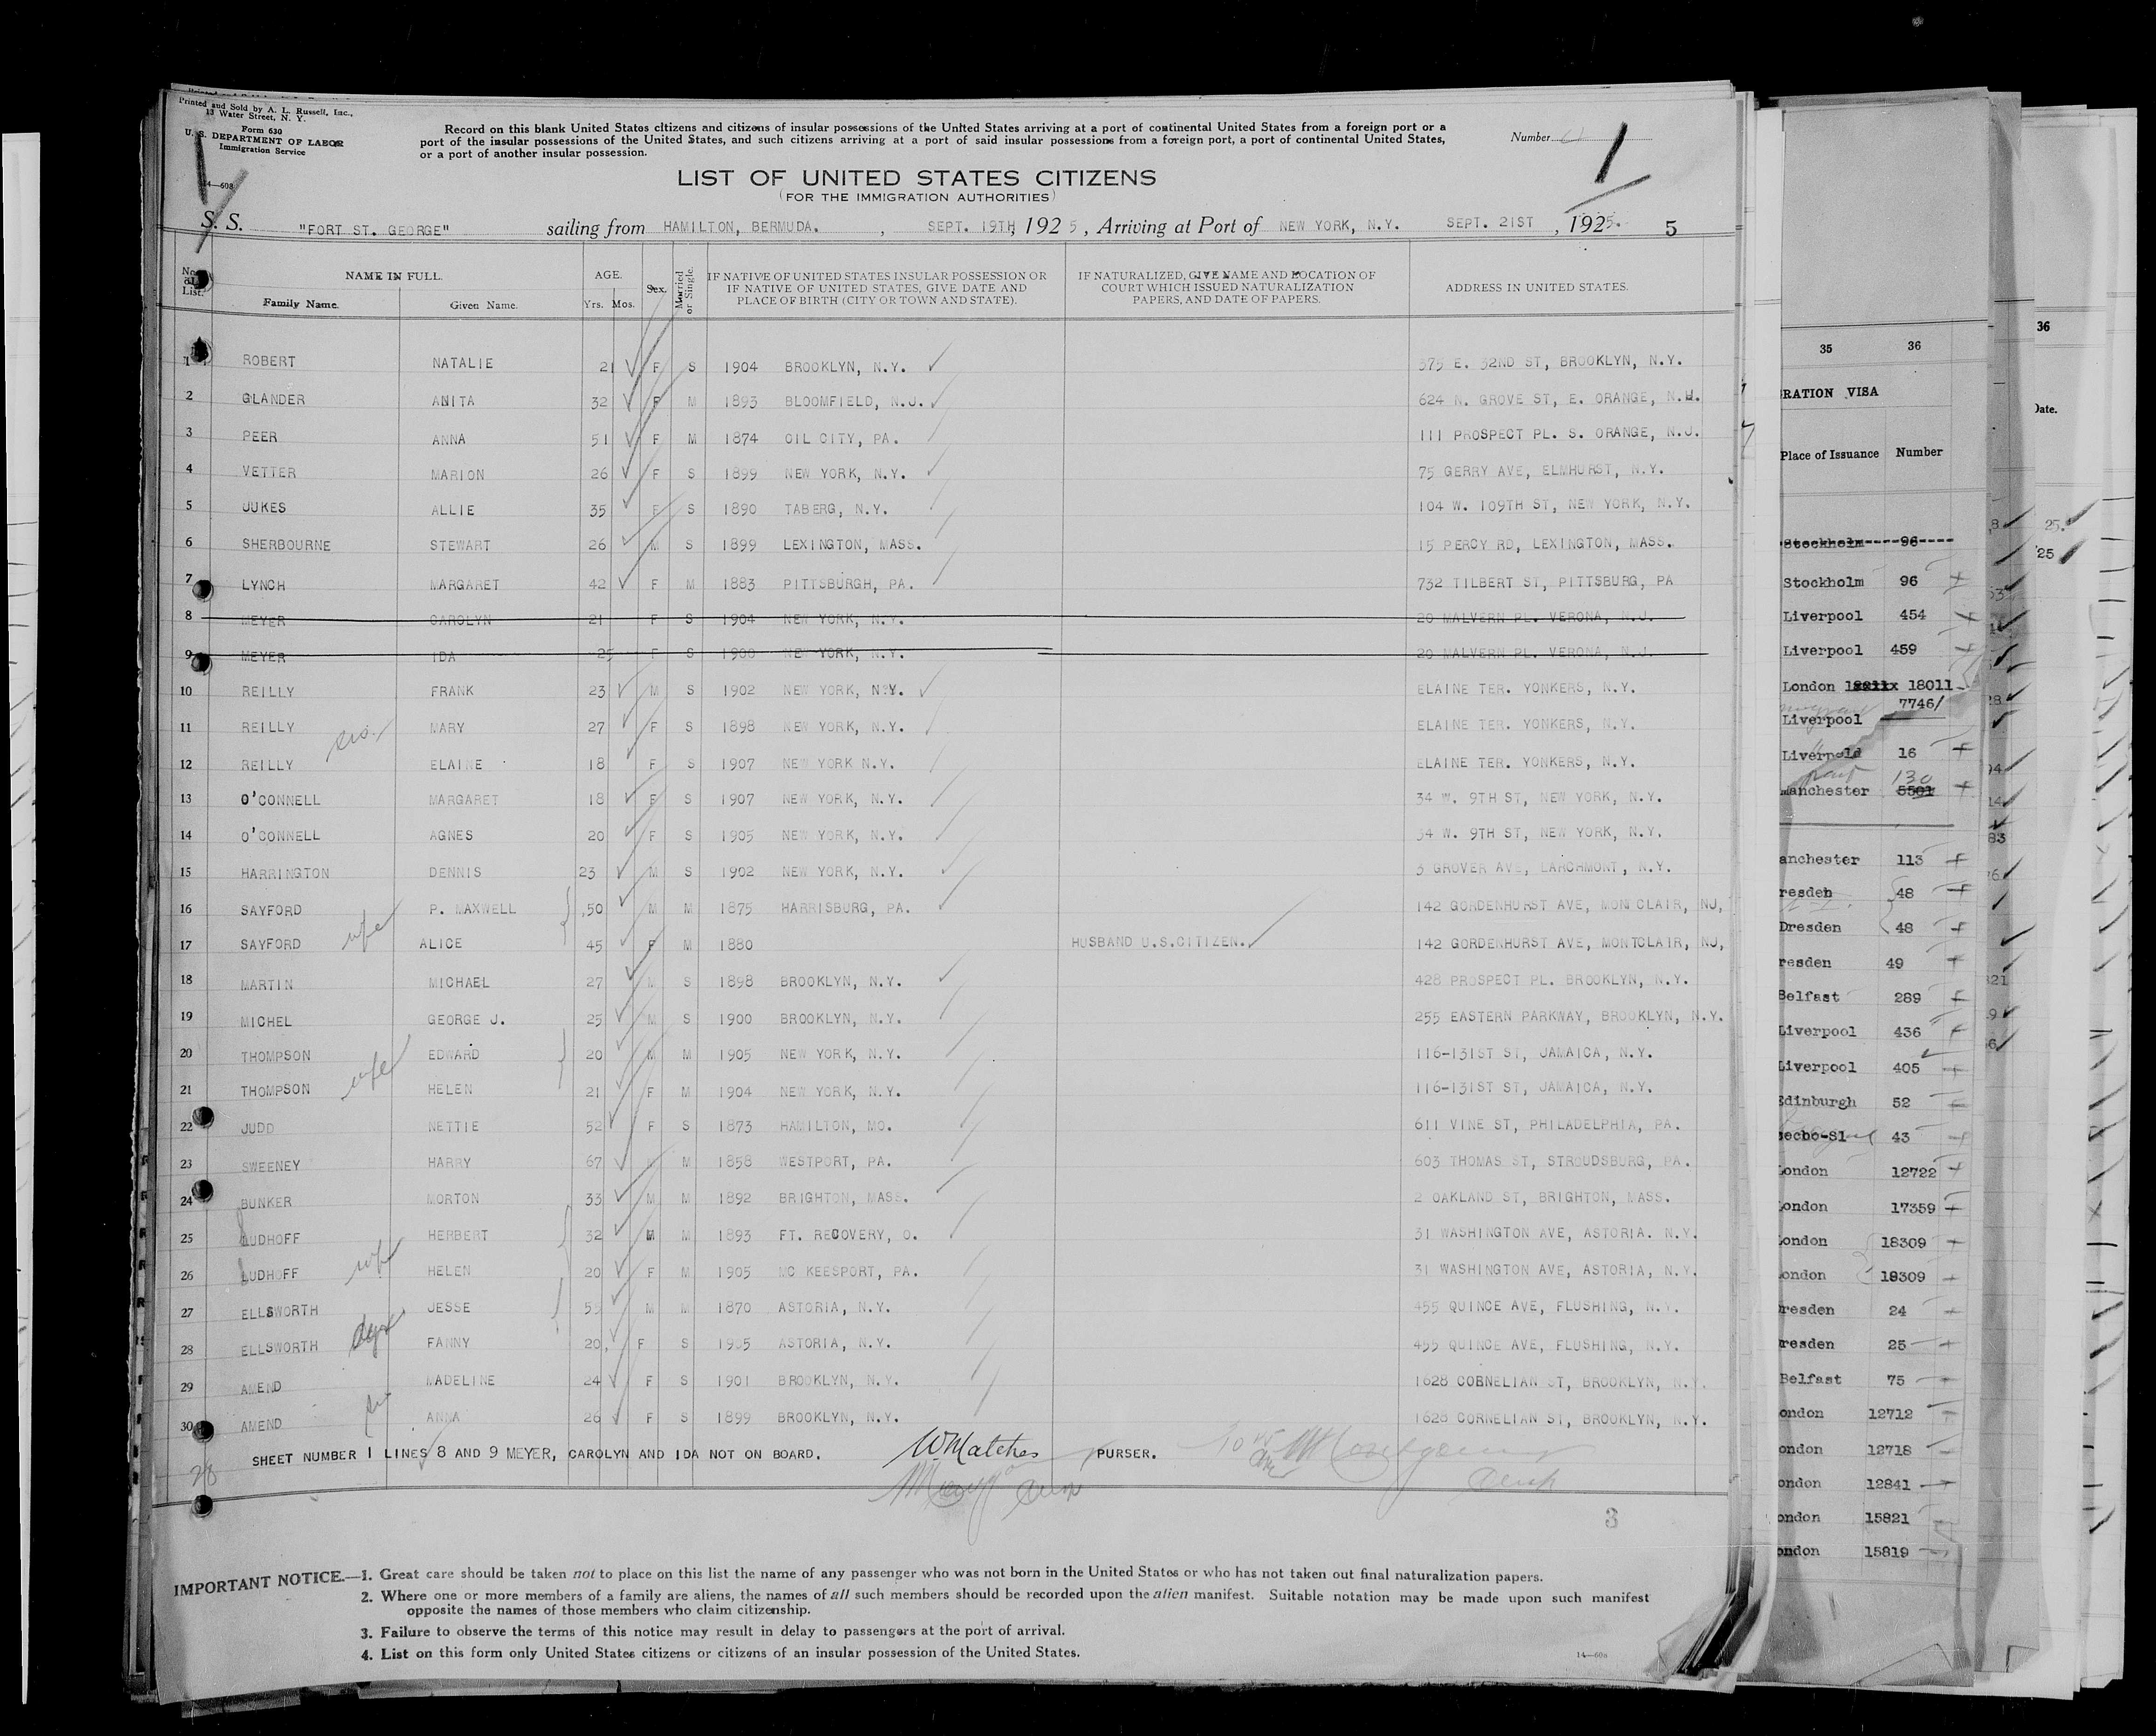 Printed and Sold by A. L. Russell, Inc.,
13 Water Street, N. Y.
Form 630
U. S. DEPARTMENT OF LABOR
Immigration Service
14—608
Record on this blank United States citizens and citizens of insular possessions of the United States arriving at a port of continental United States from a foreign port or a
port of the insular possessions of the United States, and such citizens arriving at a port of said insular possessions from a foreign port, a port of continental United States,
or a port of another insular possession.
Number
1
LIST OF UNITED STATES CITIZENS
(FOR THE IMMIGRATION AUTHORITIES)
S. S. "FORT ST. GEORGE" sailing from HAMILTON, BERMUDA. , SEPT. 19TH, 192 5 , Arriving at Port of NEW YORK, N.Y. SEPT. 21ST , 1925. 5
No. on List. NAME IN FULL. Family Name. Given Name. AGE. Yrs. Mos. Sex. Married or Single. IF NATIVE OF UNITED STATES INSULAR POSSESSION OR IF NATIVE OF UNITED STATES, GIVE DATE AND PLACE OF BIRTH (CITY OR TOWN AND STATE). IF NATURALIZED, GIVE NAME AND LOCATION OF COURT WHICH ISSUED NATURALIZATION PAPERS, AND DATE OF PAPERS. ADDRESS IN UNITED STATES.
1 ROBERT NATALIE 21 F S 1904 BROOKLYN, N.Y. 375 E. 32ND ST, BROOKLYN, N.Y.
2 GLANDER ANITA 32 F M 1893 BLOOMFIELD, N.J. 624 N. GROVE ST, E. ORANGE, N.J.
3 PEER ANNA 51 F M 1874 OIL CITY, PA. 111 PROSPECT PL. S. ORANGE, N.J.
4 VETTER MARION 26 F S 1899 NEW YORK, N.Y. 75 GERRY AVE, ELMHURST, N.Y.
5 JUKES ALLIE 35 F S 1890 TABERG, N.Y. 104 W. 109TH ST, NEW YORK, N.Y.
6 SHERBOURNE STEWART 26 M S 1899 LEXINGTON, MASS. 15 PERCY RD, LEXINGTON, MASS.
7 LYNCH MARGARET 42 F M 1883 PITTSBURGH, PA. 732 TILBERT ST, PITTSBURG, PA
8 MEYER CAROLYN 21 F S 1904 NEW YORK, N.Y. 20 MALVERN PL. VERONA, N.J.
9 MEYER IDA 25 F S 1900 NEW YORK, N.Y. 20 MALVERN PL. VERONA, N.J.
10 REILLY FRANK 23 M S 1902 NEW YORK, N.Y. ELAINE TER. YONKERS, N.Y.
11 REILLY sis. MARY 27 F S 1898 NEW YORK, N.Y. ELAINE TER. YONKERS, N.Y.
12 REILLY ELAINE 18 F S 1907 NEW YORK N.Y. ELAINE TER. YONKERS, N.Y.
13 O'CONNELL MARGARET 18 F S 1907 NEW YORK, N.Y. 34 W. 9TH ST, NEW YORK, N.Y.
14 O'CONNELL AGNES 20 F S 1905 NEW YORK, N.Y. 34 W. 9TH ST, NEW YORK, N.Y.
15 HARRINGTON DENNIS 23 M S 1902 NEW YORK, N.Y. 3 GROVER AVE, LARCHMONT, N.Y.
16 SAYFORD P. MAXWELL 50 M M 1875 HARRISBURG, PA. 142 GORDENHURST AVE, MONTCLAIR, NJ,
17 SAYFORD wife ALICE 45 F M 1880 HUSBAND U.S.CITIZEN. 142 GORDENHURST AVE, MONTCLAIR, NJ,
18 MARTIN MICHAEL 27 M S 1898 BROOKLYN, N.Y. 428 PROSPECT PL. BROOKLYN, N.Y.
19 MICHEL GEORGE J. 25 M S 1900 BROOKLYN, N.Y. 255 EASTERN PARKWAY, BROOKLYN, N.Y.
20 THOMPSON EDWARD 20 M M 1905 NEW YORK, N.Y. 116-131ST ST, JAMAICA, N.Y.
21 THOMPSON wife HELEN 21 F M 1904 NEW YORK, N.Y. 116-131ST ST, JAMAICA, N.Y.
22 JUDD NETTIE 52 F S 1873 HAMILTON, MO. 611 VINE ST, PHILADELPHIA, PA.
23 SWEENEY HARRY 67 M 1858 WESTPORT, PA. 603 THOMAS ST, STROUDSBURG, PA.
24 BUNKER MORTON 33 M M 1892 BRIGHTON, MASS. 2 OAKLAND ST, BRIGHTON, MASS.
25 LUDHOFF HERBERT 32 M M 1893 FT. RECOVERY, O. 31 WASHINGTON AVE, ASTORIA. N.Y.
26 LUDHOFF wife HELEN 20 F M 1905 MC KEESPORT, PA. 31 WASHINGTON AVE, ASTORIA, N.Y.
27 ELLSWORTH JESSE 55 M M 1870 ASTORIA, N.Y. 455 QUINCE AVE, FLUSHING, N.Y.
28 ELLSWORTH FANNY 20 F S 1905 ASTORIA, N.Y. 455 QUINCE AVE, FLUSHING, N.Y.
29 AMEND MADELINE 24 F S 1901 BROOKLYN, N.Y. 1628 CORNELIAN ST, BROOKLYN, N.Y.
30 AMEND sis ANNA 26 F S 1899 BROOKLYN, N.Y. 1628 CORNELIAN ST, BROOKLYN, N.Y.
SHEET NUMBER 1 LINES 8 AND 9 MEYER, CAROLYN AND IDA NOT ON BOARD. W Matches PURSER.
28
3
IMPORTANT NOTICE.—1. Great care should be taken not to place on this list the name of any passenger who was not born in the United States or who has not taken out final naturalization papers.
2. Where one or more members of a family are aliens, the names of all such members should be recorded upon the alien manifest. Suitable notation may be made upon such manifest
opposite the names of those members who claim citizenship.
3. Failure to observe the terms of this notice may result in delay to passengers at the port of arrival.
4. List on this form only United States citizens or citizens of an insular possession of the United States.
14—608
35 36
RATION VISA
Place of Issuance Number
Stockholm 96
Stockholm 96
Liverpool 454
Liverpool 459
London 18011
7746/
Liverpool
Liverpold 16
130
Manchester 5501
anchester 113
resden 48
Dresden 48
resden 49
Belfast 289
Liverpool 436
Liverpool 405
Edinburgh 52
43
London 12722
London 17359
London 18309
ondon 18309
Dresden 24
resden 25
Belfast 75
ondon 12712
ondon 12718
ondon 12841
ondon 15821
ondon 15819
36
Date.
25.
25